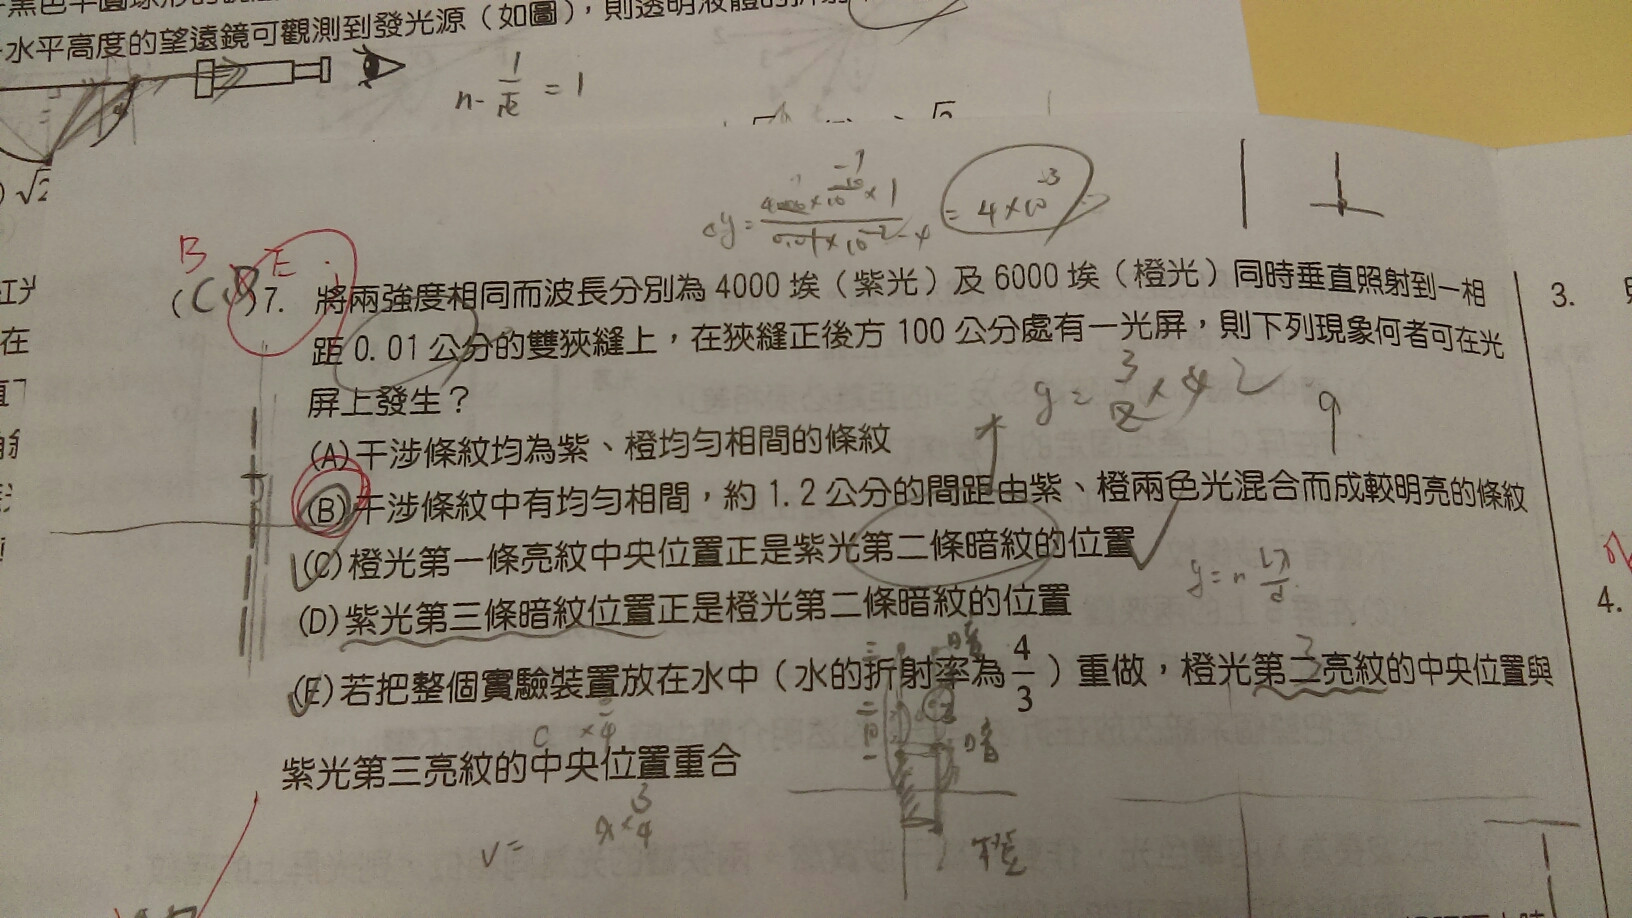 水平高度的望遠鏡可觀測到發光源（如圖），則透明液體的折射
n- 1/√2 = 1
√2
= 4×10⁻³
B E
(C )7. 將兩強度相同而波長分別為 4000 埃（紫光）及 6000 埃（橙光）同時垂直照射到一相
距 0.01 公分的雙狹縫上，在狹縫正後方 100 公分處有一光屏，則下列現象何者可在光
屏上發生？
(A)干涉條紋均為紫、橙均勻相間的條紋
(B)干涉條紋中有均勻相間，約 1.2 公分的間距由紫、橙兩色光混合而成較明亮的條紋
(C)橙光第一條亮紋中央位置正是紫光第二條暗紋的位置
y = n Lλ/d
(D)紫光第三條暗紋位置正是橙光第二條暗紋的位置
暗
(E)若把整個實驗裝置放在水中（水的折射率為 4/3 ）重做，橙光第二亮紋的中央位置與
3
暗
紫光第三亮紋的中央位置重合
λ× 3/4
v =
橙
3.
4.